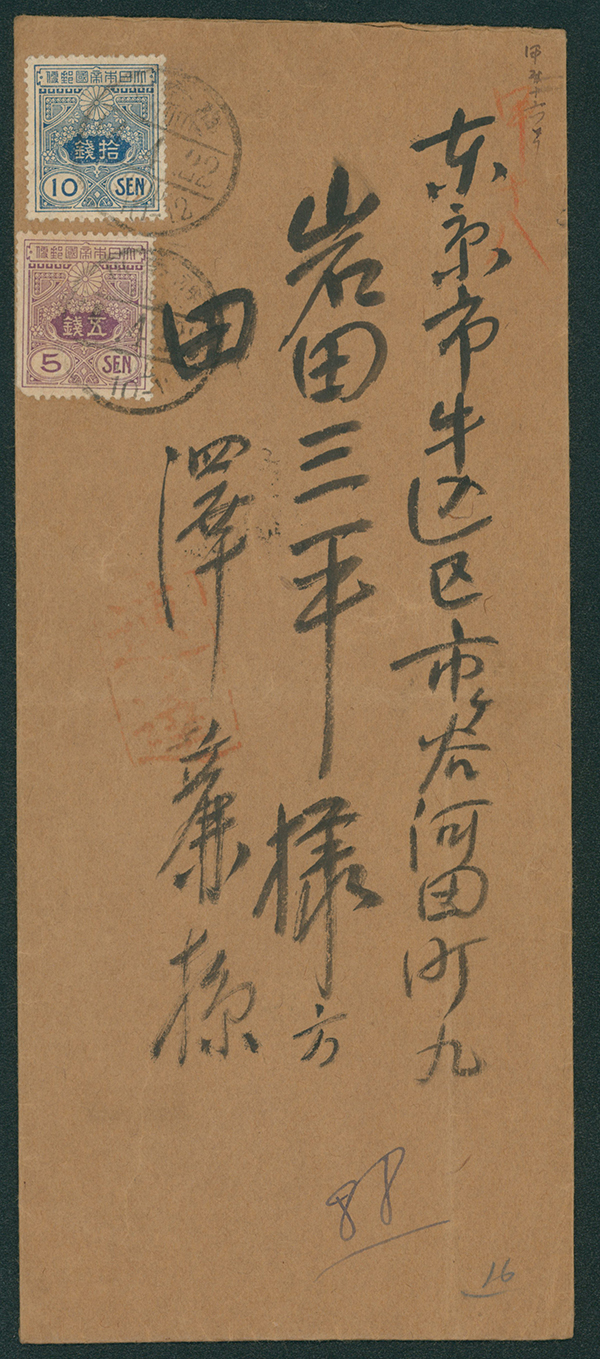 东京市牛込区市ヶ谷河田町九
岩田三平様方
田澤廉様
大日本帝國郵便
拾錢
10 SEN
大日本帝國郵便
五錢
5 SEN
22
速達
88
16